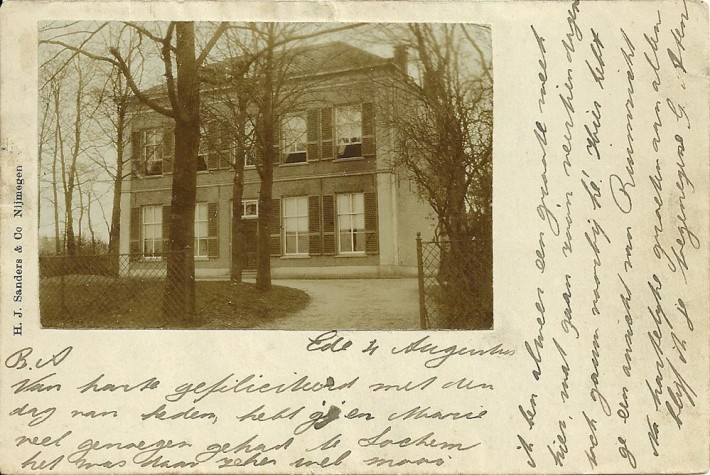 H. J. Sanders & Co Nijmegen
Ede 4 Augustus
B. A
Van harte gefiliciteerd met den
dag van heden, hebt gij en Marie
veel genoegen gehad te Lochem
het was daar zeker wel mooi.
ik ben alweer een groote week
hier, wat gaan zoon veertien dagen
toch gauw voorbij hé. Hier hebt
ge een ansicht van Ruimzicht
Na hartelijke groeten aan allen
blijf ik je